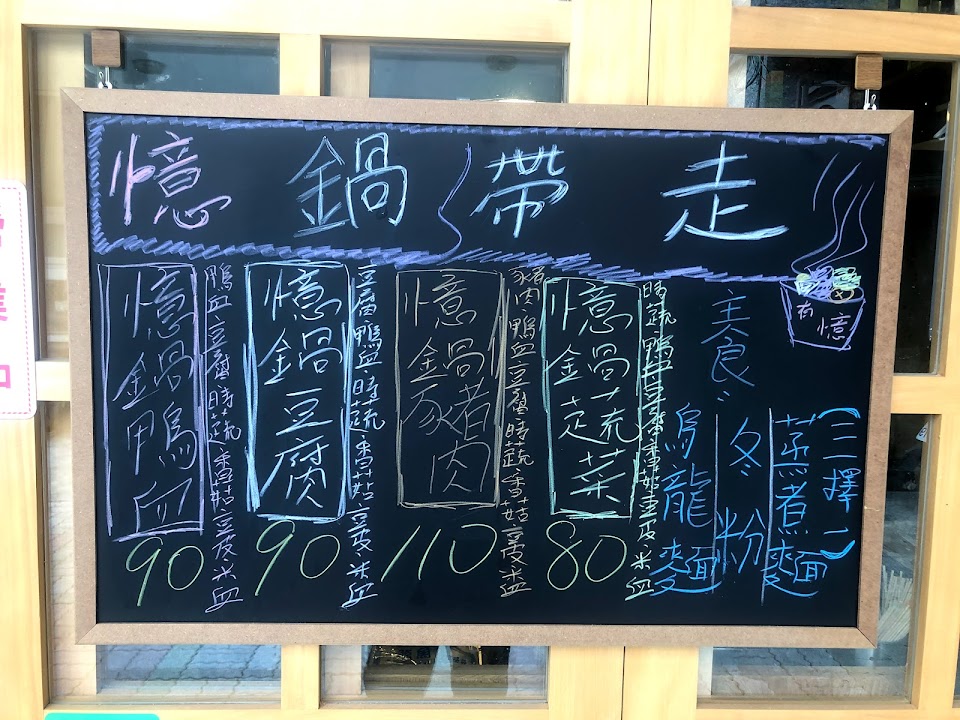 憶鍋帶走
有憶
美食
(三擇一)
蒸煮麵
冬粉
烏龍麵
憶鍋蔬菜
80
憶鍋豬肉
豬肉、鴨血、豆腐、時蔬、香菇、豆皮、米血
110
憶鍋豆腐
豆腐、鴨血、時蔬、香菇、豆皮、米血
90
憶鍋鴨血
鴨血、豆腐、時蔬、香菇、豆皮、米血
90